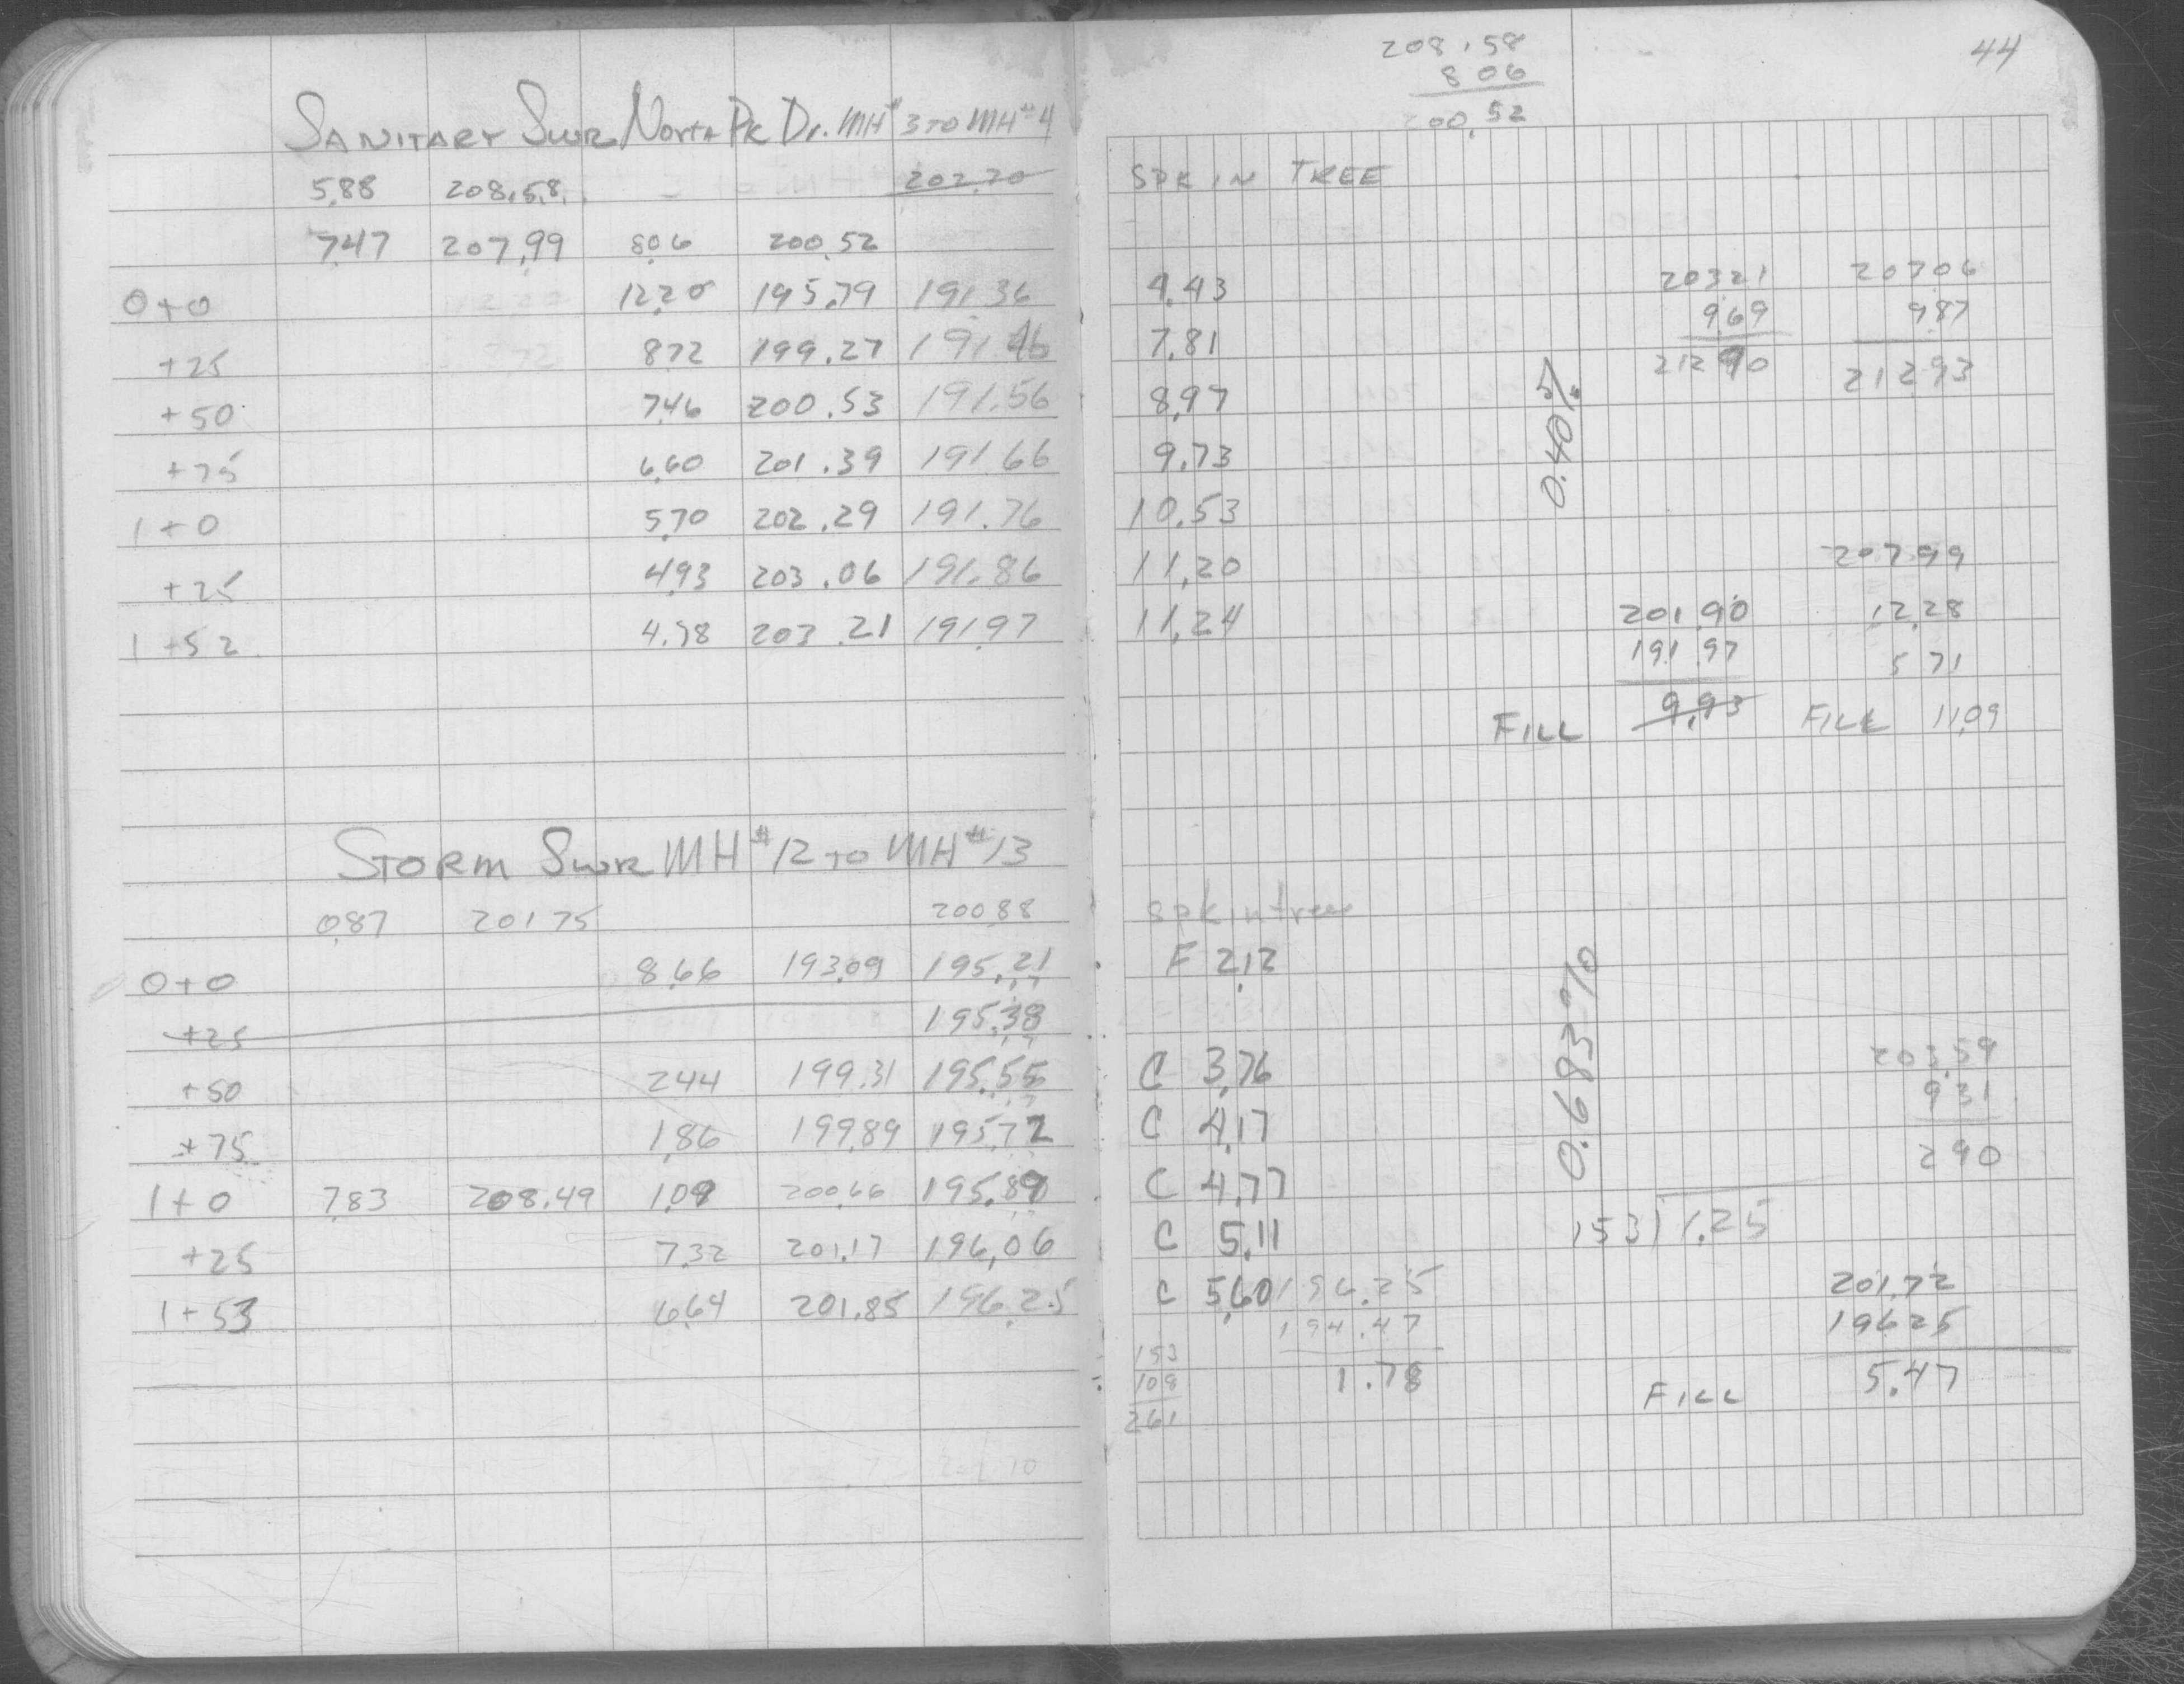 SANITARY SWR North PK Dr. MH#3 TO MH#4
5.88 208.58 202.70
7.47 207.99 8.06 200.52
0+0 12.20 195.79 191.36
+25 8.72 199.27 191.46
+50 7.46 200.53 191.56
+75 6.60 201.39 191.66
1+0 5.70 202.29 191.76
+25 4.93 203.06 191.86
1+52 4.78 203.21 191.97
STORM SWR MH#12 TO MH#13
0.87 201.75 200.88
0+0 8.66 193.09 195.21
+25 195.38
+50 2.44 199.31 195.55
+75 1.86 199.89 195.72
1+0 7.83 208.49 1.09 200.66 195.89
+25 7.32 201.17 196.06
1+53 6.64 201.85 196.25
44
208.58
8 06
200.52
SPK IN TREE
4.43
7.81
8.97
9.73
10.53
11.20
11.24
0.40%
203 21
9.69
212 90
207.06
9.87
212.93
207.99
12.28
5 71
FILL 11.09
201.90
191.97
FILL 9.93
spk in tree
F 2.12
C 3.76
C 4.17
C 4.77
C 5.11
C 5.60
0.683%
203.59
9 31
2 90
153 1.25
196.25
194.47
1.78
153
108
261
201.72
196 25
FILL 5.47